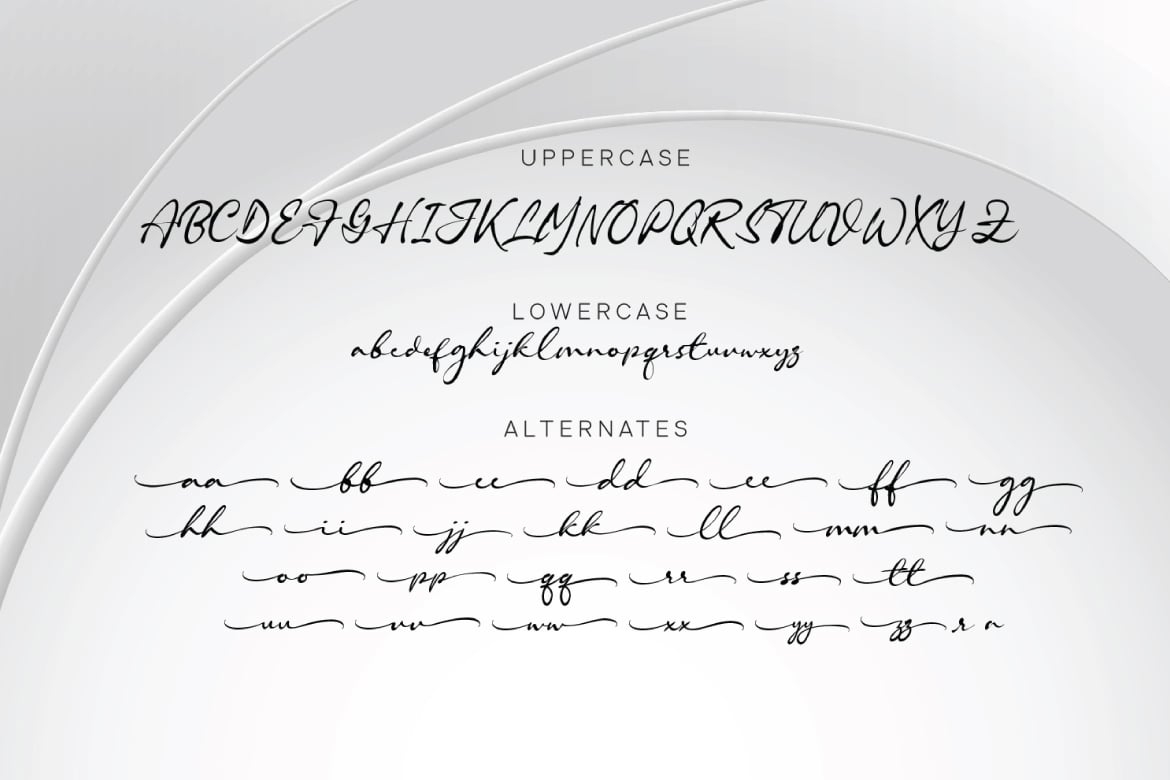 UPPERCASE
ABCDEFGHIJKLMNOPQRSTUVWXYZ
LOWERCASE
abcdefghijklmnopqrstuvwxyz
ALTERNATES
aa bb cc dd ee ff gg
hh ii jj kk ll mm nn
oo pp qq rr ss tt
uu vv ww xx yy zz r